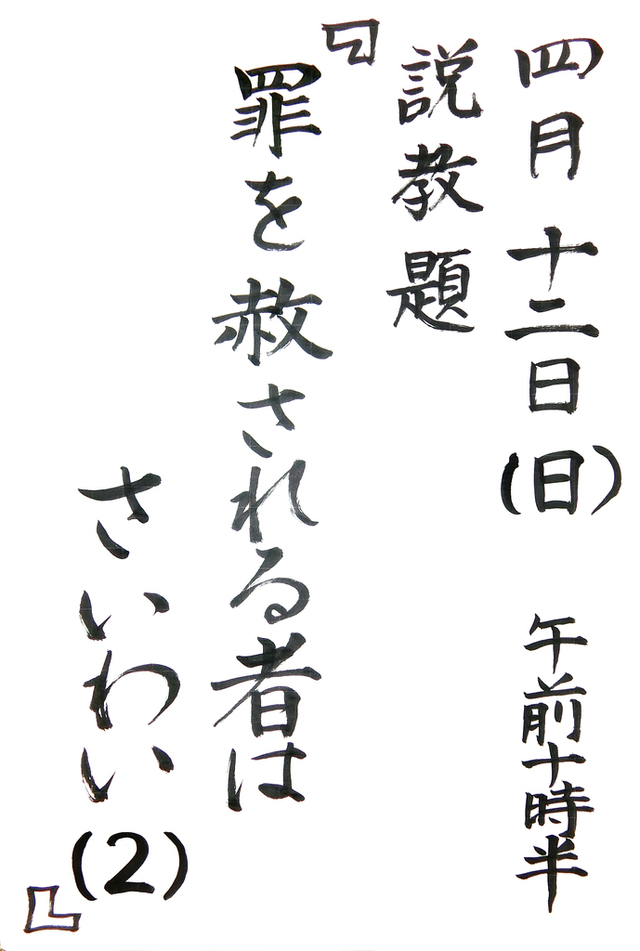 四月十二日(日) 午前十時半
説教題
『罪を赦される者は
さいわい(2)』